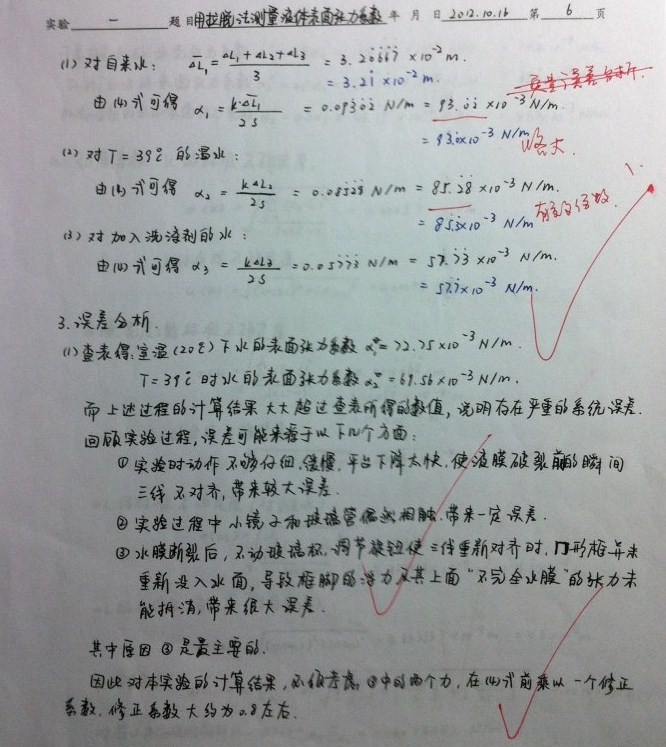 实验 一 题目 用拉脱法测量液体表面张力系数 年 月 日 2012.10.16 第 6 页
(1) 对自来水: ΔL₁ = (ΔL₁+ΔL₂+ΔL₃)/3 = 3.20667 ×10⁻² m.
= 3.21 ×10⁻² m.
由(4)式可得 α₁ = kΔL₁/2s = 0.09302 N/m = 93.02 ×10⁻³ N/m.
= 93.0×10⁻³ N/m 略大.
(2) 对 T=39℃ 的温水:
由(4)式可得 α₂ = kΔL₂/2s = 0.08528 N/m = 85.28 ×10⁻³ N/m.
= 85.3×10⁻³ N/m 有效位数.
(3) 对加入洗涤剂的水:
由(4)式可得 α₃ = kΔL₃/2s = 0.05773 N/m = 57.73 ×10⁻³ N/m.
= 57.7×10⁻³ N/m.
3. 误差分析.
(1) 查表得: 室温(20℃)下水的表面张力系数 α₁* = 72.75×10⁻³ N/m.
T=39℃ 时水的表面张力系数 α₂* = 69.56×10⁻³ N/m.
而上述过程的计算结果大大超过查表所得的数值, 说明存在严重的系统误差.
回顾实验过程, 误差可能来源于以下几个方面:
① 实验时动作不够仔细、缓慢, 平台下降太快, 使液膜破裂前的瞬间
三线不对齐, 带来较大误差.
② 实验过程中小镜子和玻璃管偶然相触, 带来一定误差.
③ 水膜断裂后, 不动玻璃杯, 调节旋钮使三线重新对齐时, 门形框并未
重新没入水面, 导致框脚的浮力及其上面“不完全水膜”的张力未
能抵消, 带来很大误差.
其中原因 ③ 是最主要的.
因此对本实验的计算结果, 必须考虑 ③ 中的两个力, 在(4)式前乘以一个修正
系数, 修正系数大约为 0.8 左右.